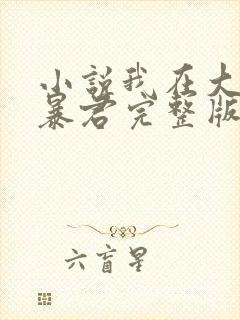 小说我在大
暴君完整版
六盲星